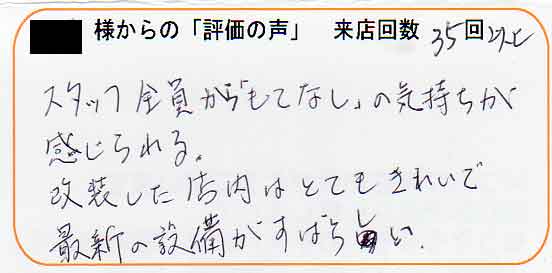 様からの「評価の声」 来店回数 35回以上
スタッフ全員から「もてなし」の気持ちが
感じられる。
改装した店内はとてもきれいで
最新の設備がすばらしい.